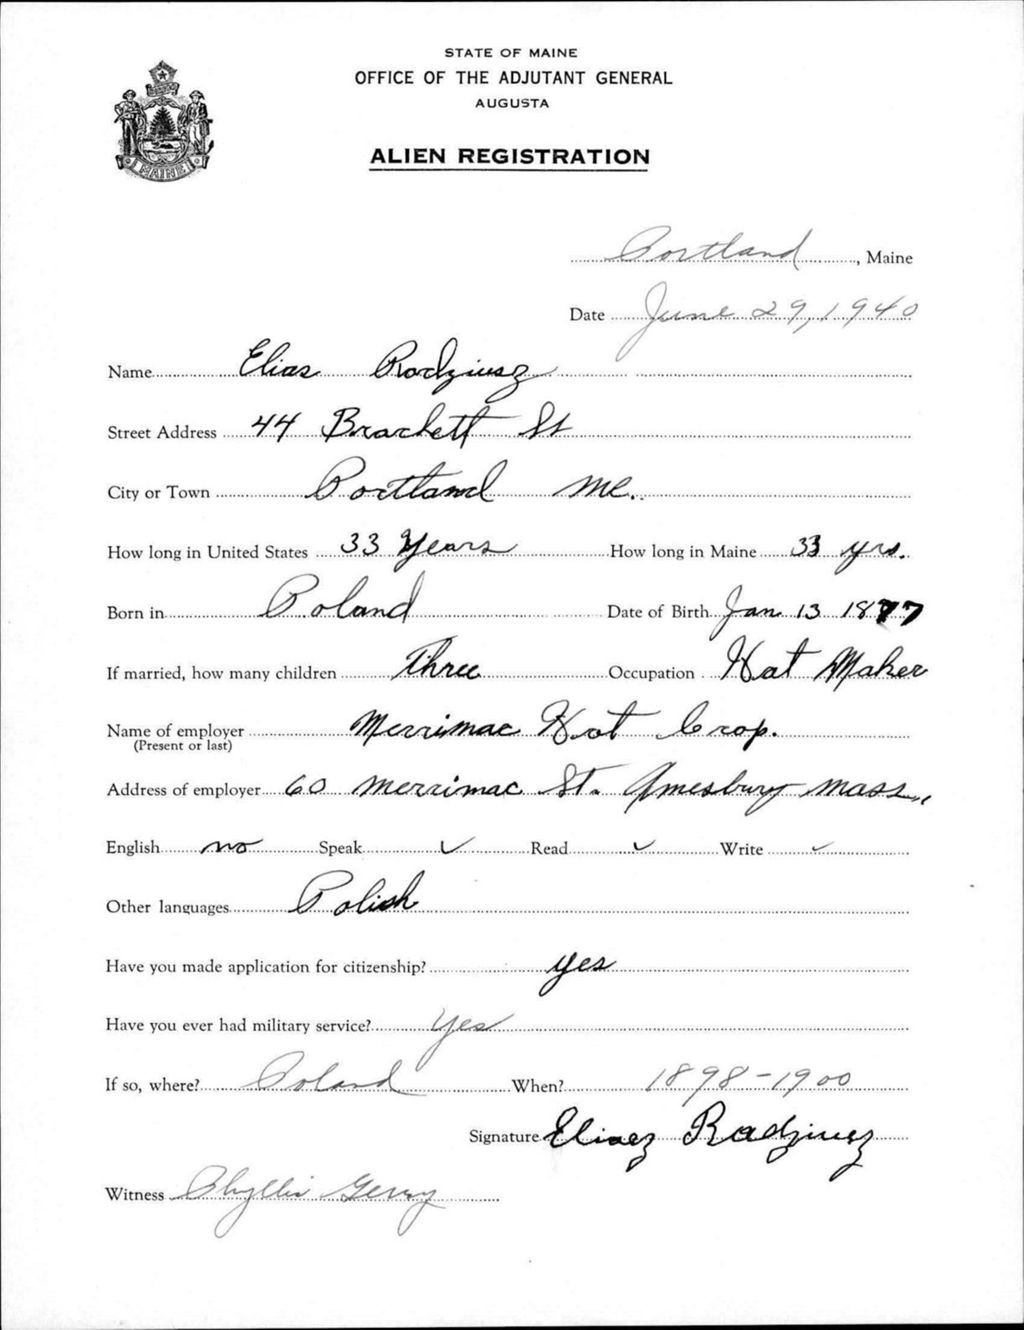 STATE OF MAINE
OFFICE OF THE ADJUTANT GENERAL
AUGUSTA
ALIEN REGISTRATION
MAINE
Portland, Maine
Date June 29, 1940
Name Elias Radziusz
Street Address 44 Brackett St
City or Town Portland Me.
How long in United States 33 Years How long in Maine 33 yrs.
Born in Poland Date of Birth Jan 13 1877
If married, how many children three Occupation Hat Maker
Name of employer Merrimac Hat Crop.
(Present or last)
Address of employer 60 Merrimac St. Amesbury Mass,
English no Speak ✓ Read ✓ Write ✓
Other languages Polish
Have you made application for citizenship? yes
Have you ever had military service? Yes
If so, where? Poland When? 1898-1900
Signature Radziusz
Witness Phyllis